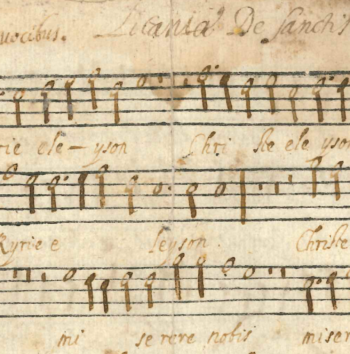 vocibus. Litania De Sanctis
rie ele-yson Chri ste eleyson
Kyrie e leyson. Christe
mi serere nobis miser